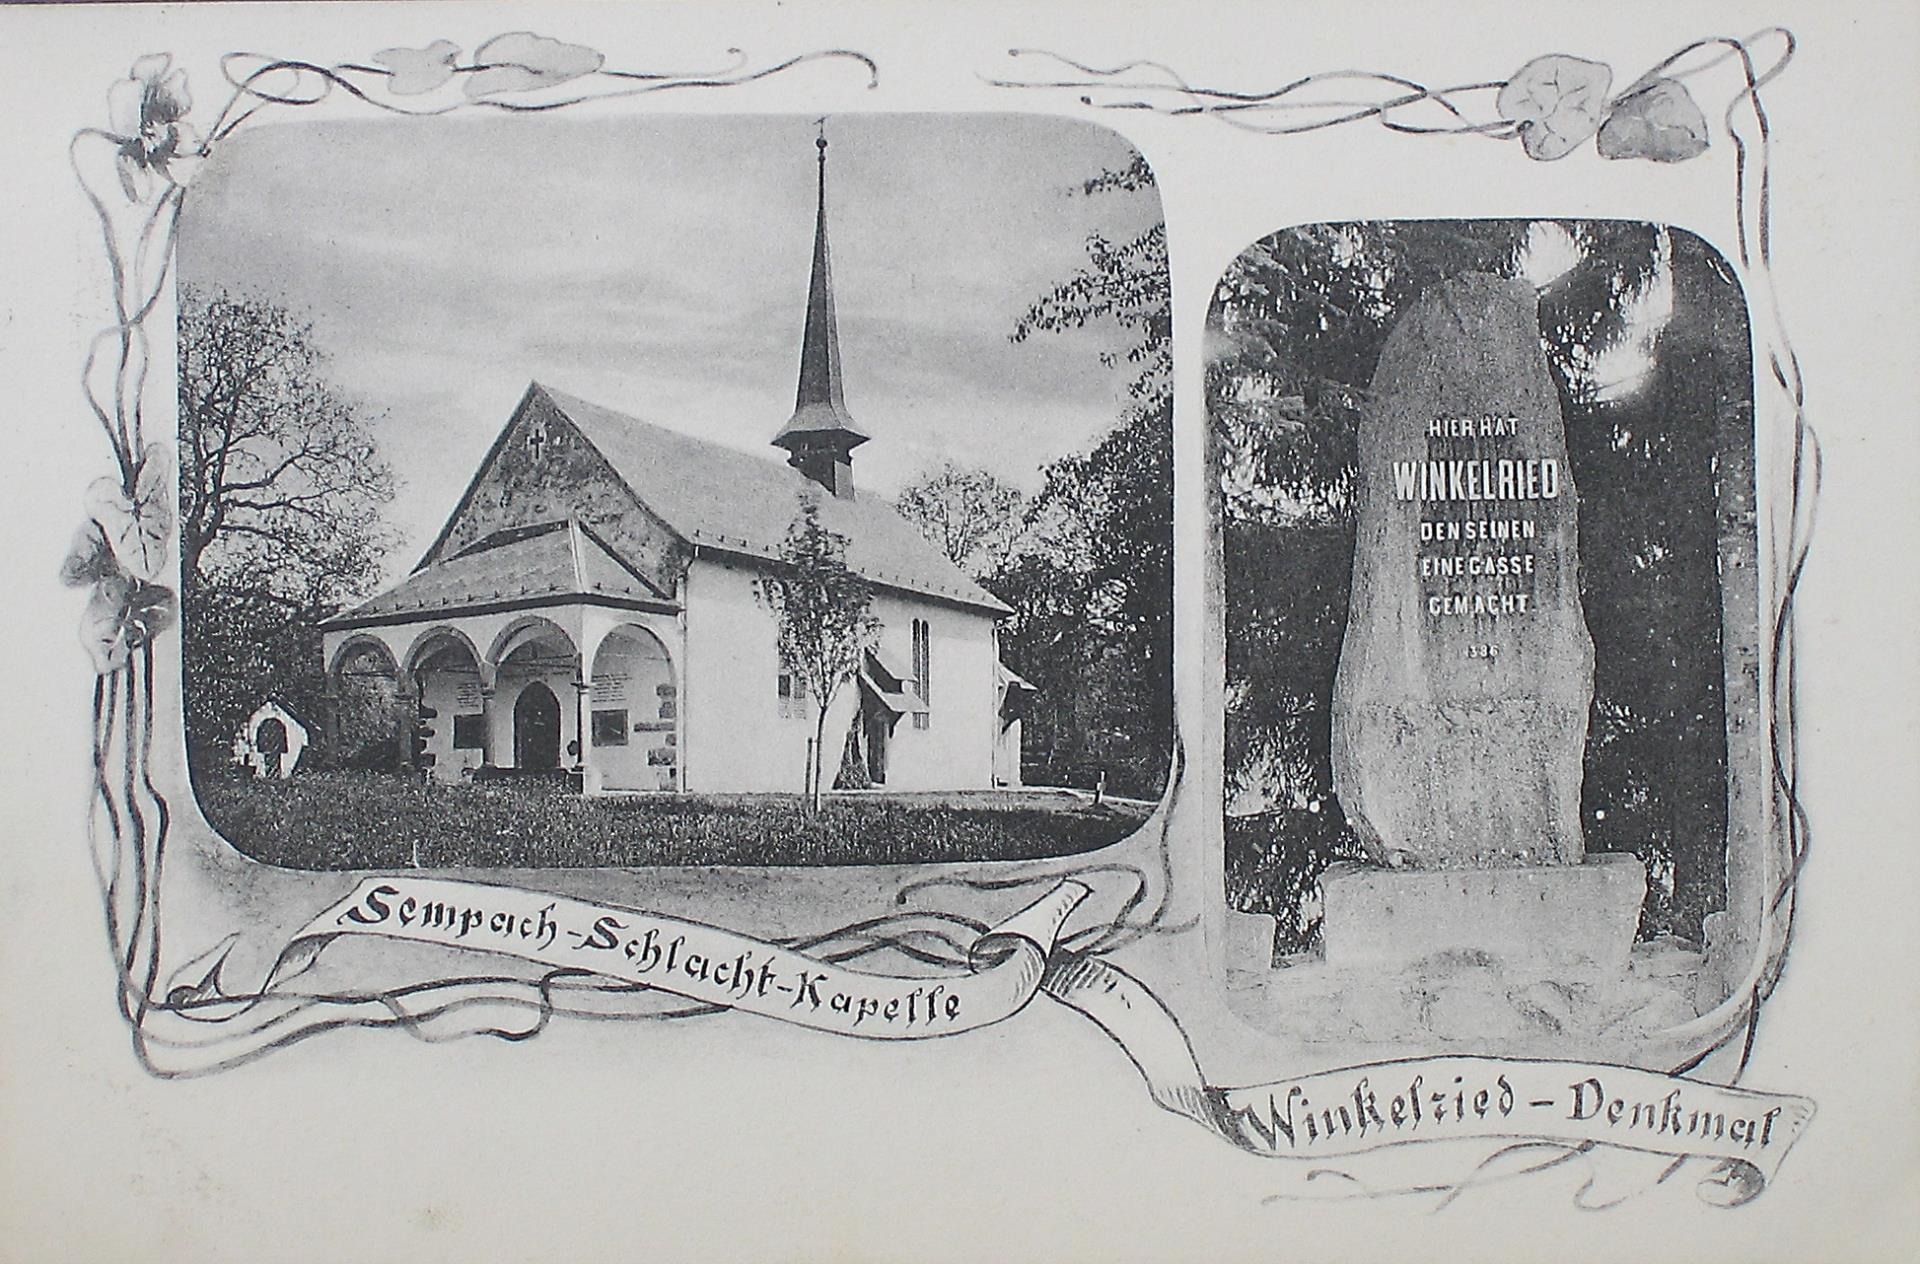 HIER HAT
WINKELRIED
DEN SEINEN
EINE GASSE
GEMACHT
1386
Sempach-Schlacht-Kapelle
Winkelried-Denkmal